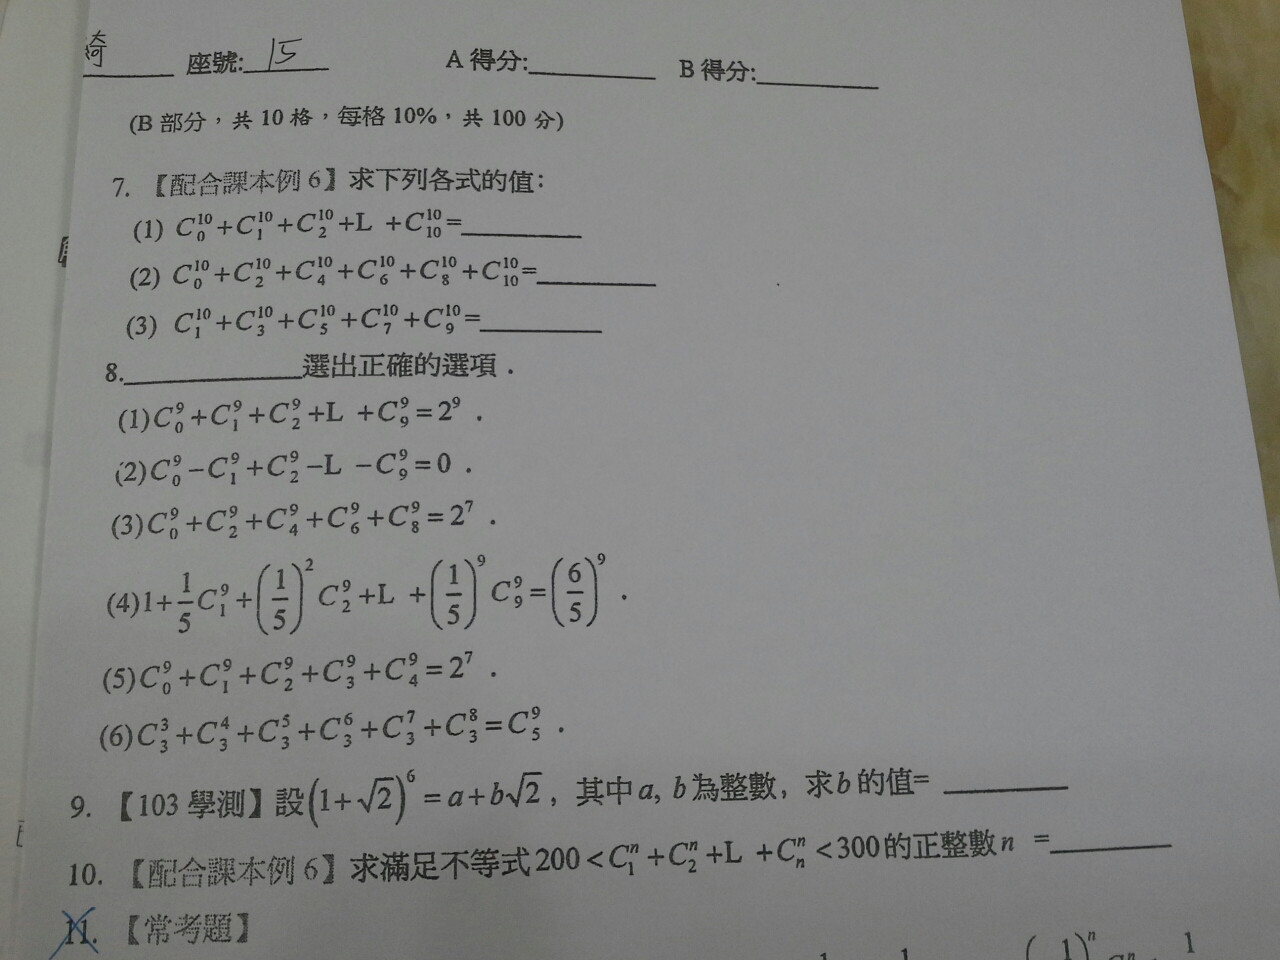 綺 座號: 15 A 得分: B 得分:
(B 部分，共 10 格，每格 10%，共 100 分)
7. 【配合課本例 6】求下列各式的值：
(1) C₀¹⁰+C₁¹⁰+C₂¹⁰+L +C₁₀¹⁰=
(2) C₀¹⁰+C₂¹⁰+C₄¹⁰+C₆¹⁰+C₈¹⁰+C₁₀¹⁰=
(3) C₁¹⁰+C₃¹⁰+C₅¹⁰+C₇¹⁰+C₉¹⁰=
8. 選出正確的選項．
(1)C₀⁹+C₁⁹+C₂⁹+L +C₉⁹=2⁹．
(2)C₀⁹−C₁⁹+C₂⁹−L −C₉⁹=0．
(3)C₀⁹+C₂⁹+C₄⁹+C₆⁹+C₈⁹=2⁷．
(4)1+1/5C₁⁹+(1/5)²C₂⁹+L +(1/5)⁹C₉⁹=(6/5)⁹．
(5)C₀⁹+C₁⁹+C₂⁹+C₃⁹+C₄⁹=2⁷．
(6)C₃³+C₃⁴+C₃⁵+C₃⁶+C₃⁷+C₃⁸=C₅⁹．
9. 【103 學測】設(1+√2)⁶=a+b√2，其中a, b為整數，求b的值=
10. 【配合課本例 6】求滿足不等式200<C₁ⁿ+C₂ⁿ+L +Cₙⁿ<300的正整數n =
11. 【常考題】